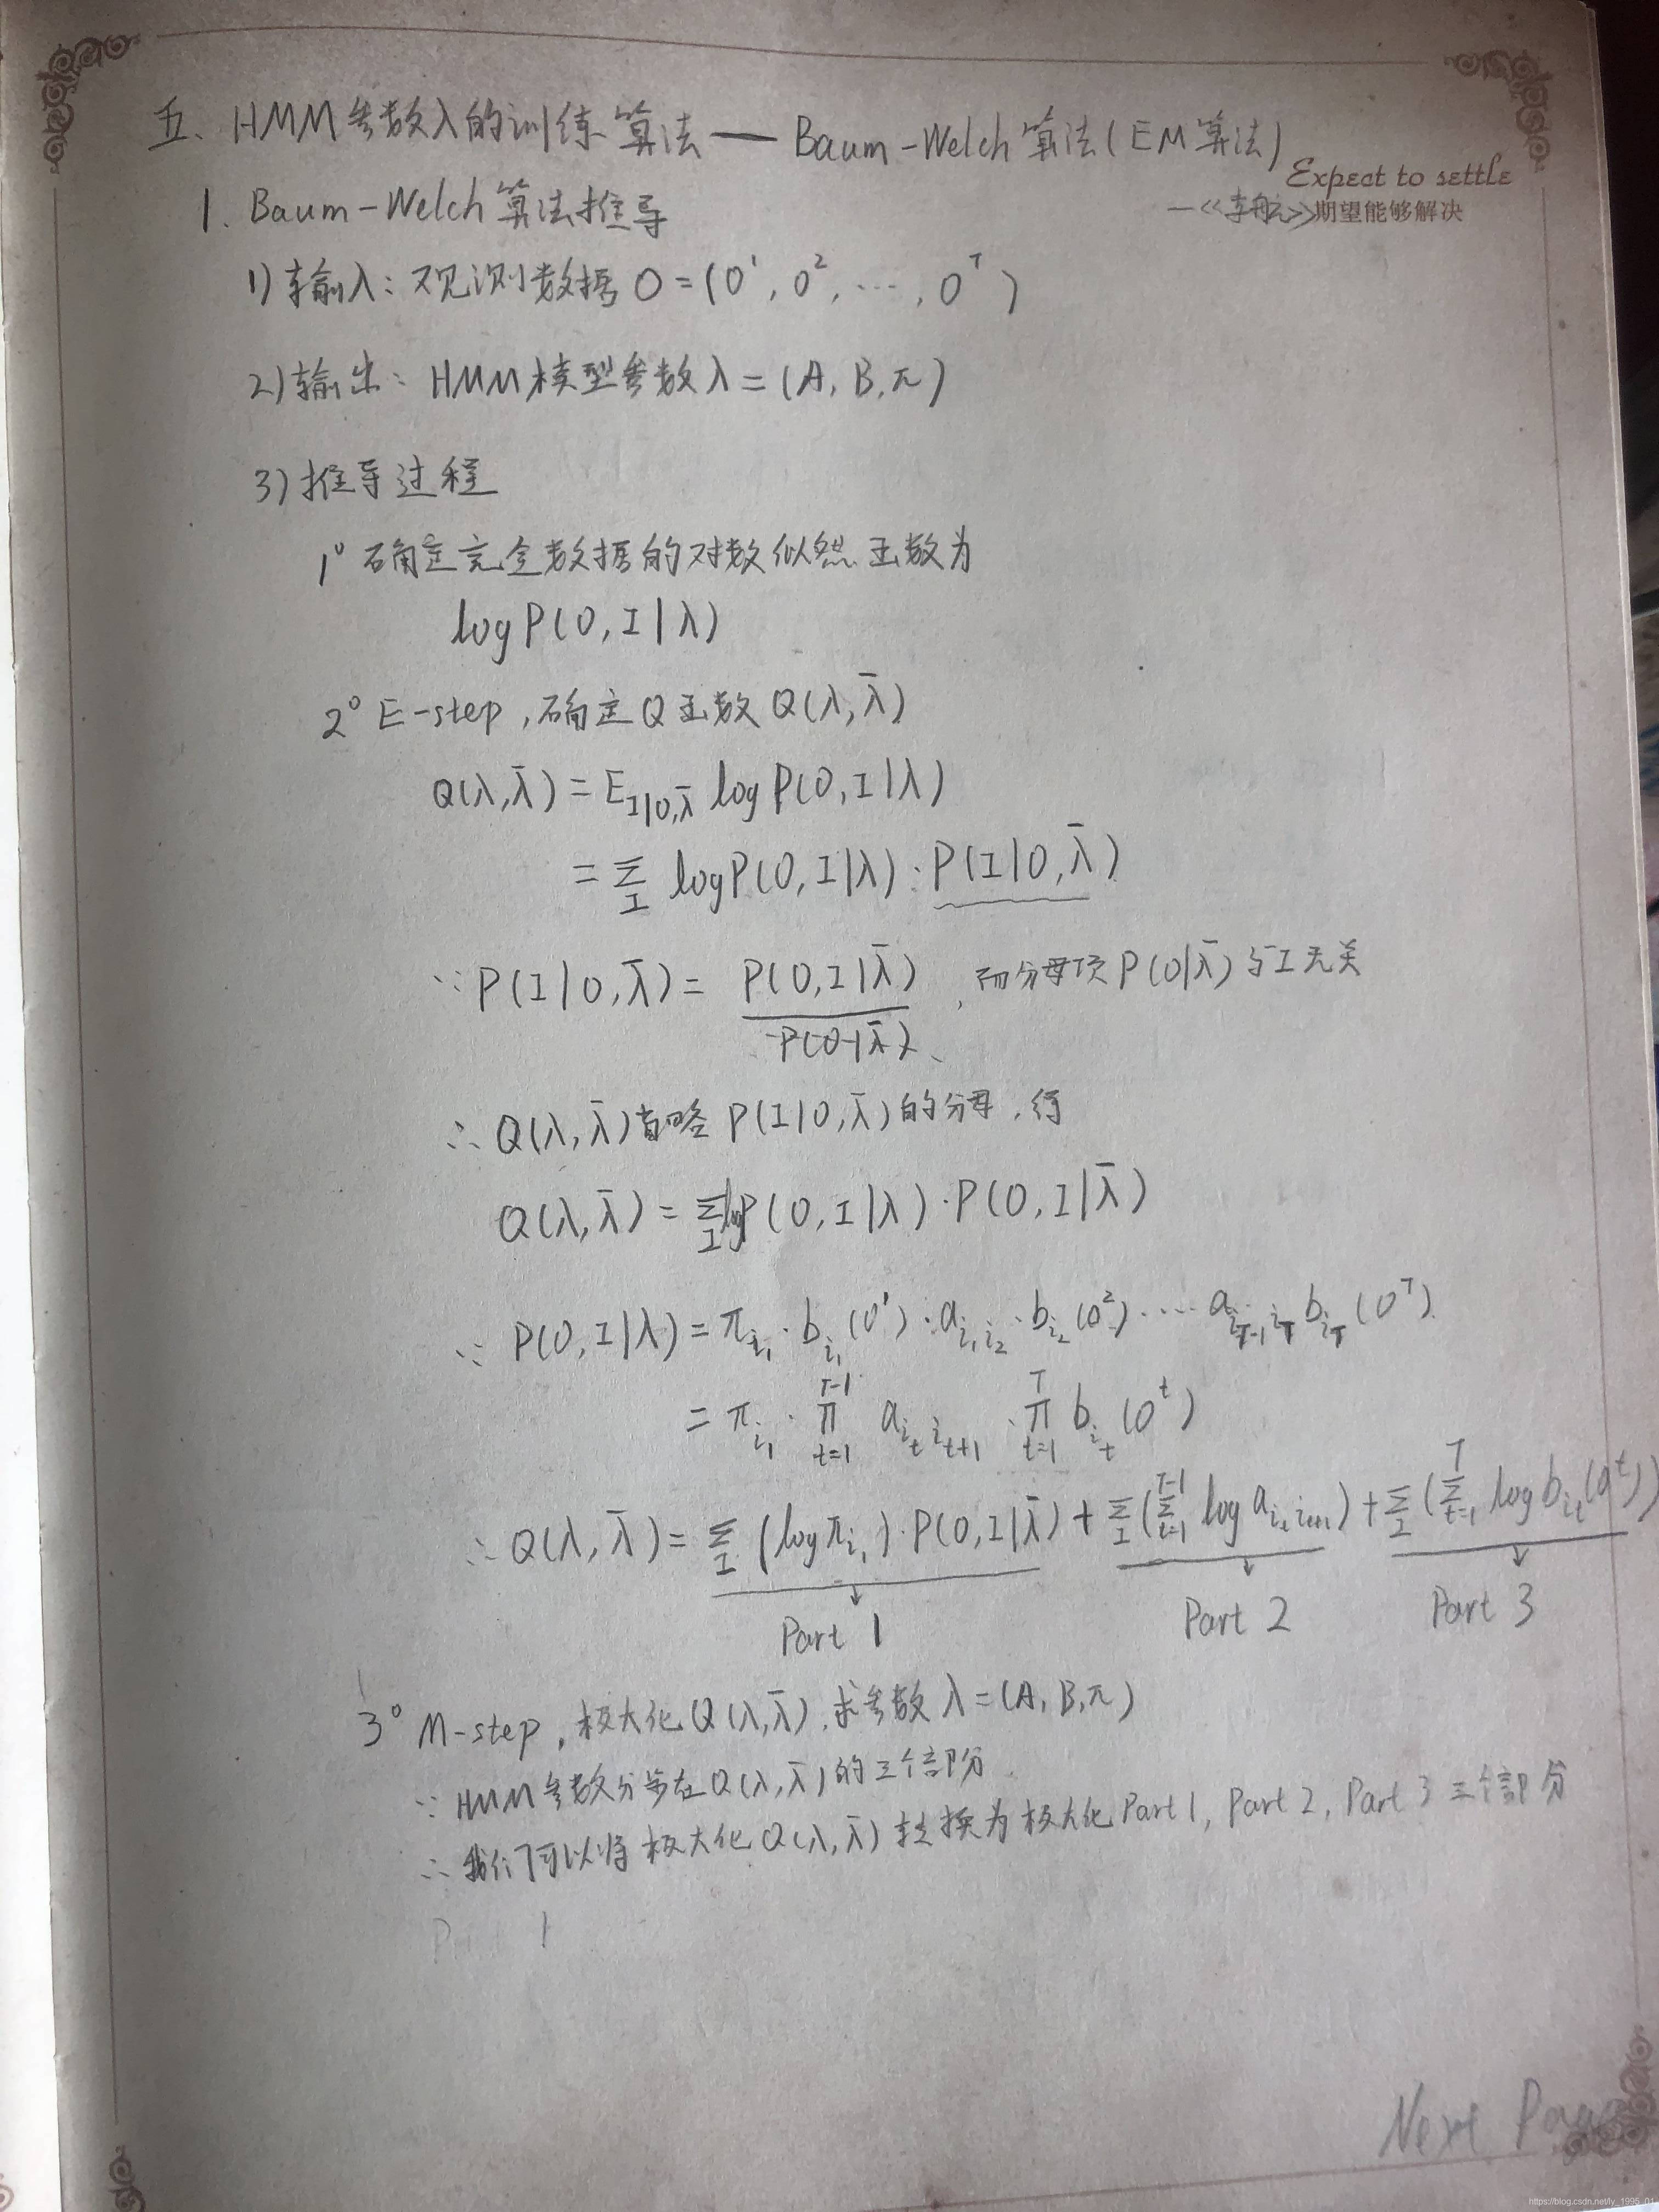 五、HMM参数λ的训练算法——Baum-Welch算法(EM算法)
Expect to settle
—<<李航>>期望能够解决
1. Baum-Welch算法推导
1) 输入: 观测数据 O=(O¹, O², ⋯, Oᵀ)
2) 输出: HMM模型参数λ=(A, B, π)
3) 推导过程
1° 确定完全数据的对数似然函数为
log P(O, I|λ)
2° E-step, 确定Q函数 Q(λ, λ̄)
Q(λ, λ̄) = E_{I|O,λ̄} log P(O, I|λ)
= Σ_I log P(O, I|λ)·P(I|O, λ̄)
∵ P(I|O, λ̄) = P(O, I|λ̄) / P(O|λ̄), 而分母项 P(O|λ̄) 与I无关
∴ Q(λ, λ̄)省略 P(I|O, λ̄) 的分母, 得
Q(λ, λ̄) = Σ_I log P(O, I|λ)·P(O, I|λ̄)
∵ P(O, I|λ) = π_{i₁}·b_{i₁}(O¹)·a_{i₁i₂}·b_{i₂}(O²)·⋯·a_{i_{T-1}i_T} b_{i_T}(Oᵀ)
= π_{i₁}·∏_{t=1}^{T-1} a_{i_t i_{t+1}}·∏_{t=1}^{T} b_{i_t}(Oᵗ)
∴ Q(λ, λ̄) = Σ_I (log π_{i₁})·P(O, I|λ̄) + Σ_I (Σ_{t=1}^{T-1} log a_{i_t i_{t+1}}) + Σ_I (Σ_{t=1}^{T} log b_{i_t}(Oᵗ))
↓ ↓ ↓
Part 1 Part 2 Part 3
3° M-step, 极大化Q(λ, λ̄), 求参数 λ=(A, B, π)
∵ HMM参数分步在Q(λ, λ̄)的三个部分
∴ 我们可以将极大化Q(λ, λ̄) 转换为极大化Part 1, Part 2, Part 3 三个部分
Next Page
https://blog.csdn.net/lv_1995_01